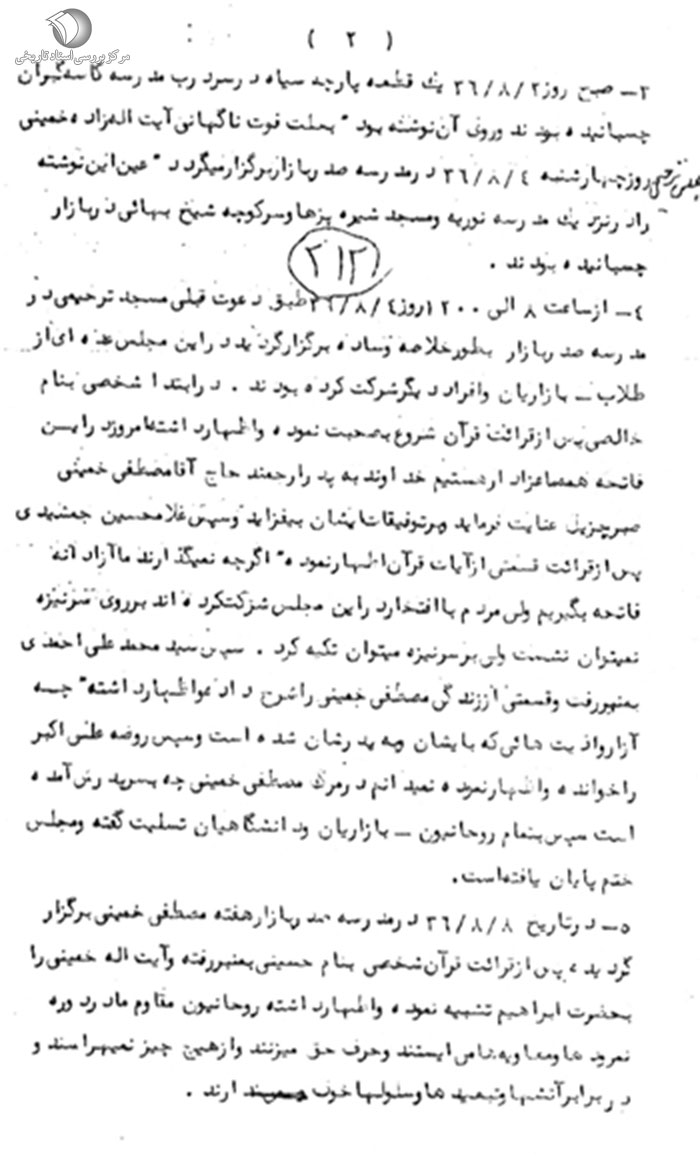 مرکز بررسی اسناد تاریخی
( ۲ )
۳ـ صبح روز ۳۶/۸/۲ یک قطعه پارچه سیاه در سردرب مدرسه کاسه‌گران
چسبانیده بودند وروی آن نوشته بود " بعلت فوت ناگهانی آیت اله‌زاده خمینی
مجلس ترحیمی روز چهارشنبه ۳۶/۸/۴ در مدرسه صدر بازار برگزار میگردد " عین این نوشته
را در نزدیک مدرسه نوریه ومسجد شیره پزها وسرکوچه شیخ بهائی در بازار
چسبانیده بودند .
۲۱۳
۴ـ از ساعت ۸ الی ۱۲۰۰ روز ۳۶/۸/۴ طبق دعوت قبلی مسجد ترحیمی در
مدرسه صدر بازار بطور خلاصه وساده برگزار گردید در این مجلس عده ای از
طلاب ـ بازاریان وافراد دیگر شرکت کرده بودند . در ابتدا شخصی بنام
خالصی پس از قرائت قرآن شروع بصحبت نموده واظهار داشته امروز در این
فاتحه همه ما عزادار هستیم خداوند به پدر ارجمند حاج آقا مصطفی خمینی
صبر جزیل عنایت فرماید وبر توفیقات ایشان بیفزاید وسپس غلامحسین جمشیدی
پس از قرائت قسمتی از آیات قرآن اظهار نموده " اگرچه نمیگذارند ما آزادانه
فاتحه بگیریم ولی مردم با افتخار در این مجلس شرکت کرده اند بر روی سر نیزه
نمیتوان نشست ولی بر سر نیزه میتوان تکیه کرد . سپس سید محمد علی احمدی
به منبر رفت وقسمتی از زندگی مصطفی خمینی را شرح داد واظهار داشته " چه
آزار واذیت هائی که بایشان وبه پدرشان شده است وسپس روضه علی اکبر
را خوانده واظهار نموده نمیدانم در مرگ مصطفی خمینی چه بسر پدرش آمده
است سپس بتمام روحانیون ـ بازاریان ودانشگاهیان تسلیت گفته ومجلس
ختم پایان یافته است.
۵ـ در تاریخ ۳۶/۸/۸ در مدرسه صدر بازار هفته مصطفی خمینی برگزار
گردید ، پس از قرائت قرآن شخصی بنام حسینی بمنبر رفته وآیت اله خمینی را
بحضرت ابراهیم تشبیه نموده واظهار داشته روحانیون مقاوم ما در دوره
نمرودها ومعاویه ها می ایستند وحرف حق میزنند واز هیچ چیز نمیهراسند و
در برابر آتشها وتبعیدها وسلولها خوف ندارند .